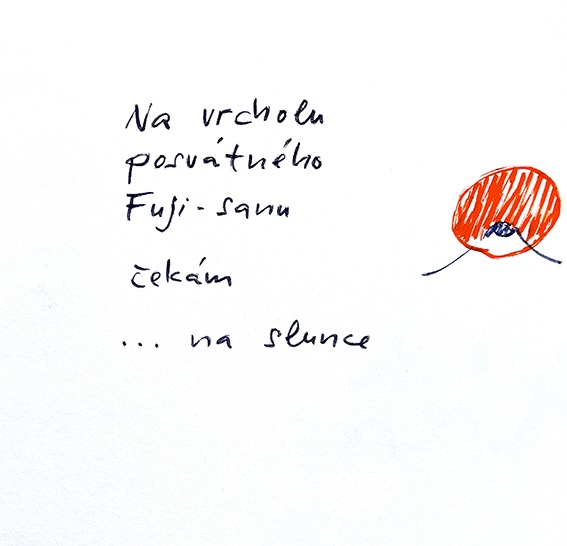 Na vrcholu
posvátného
Fuji-sanu
čekám
... na slunce